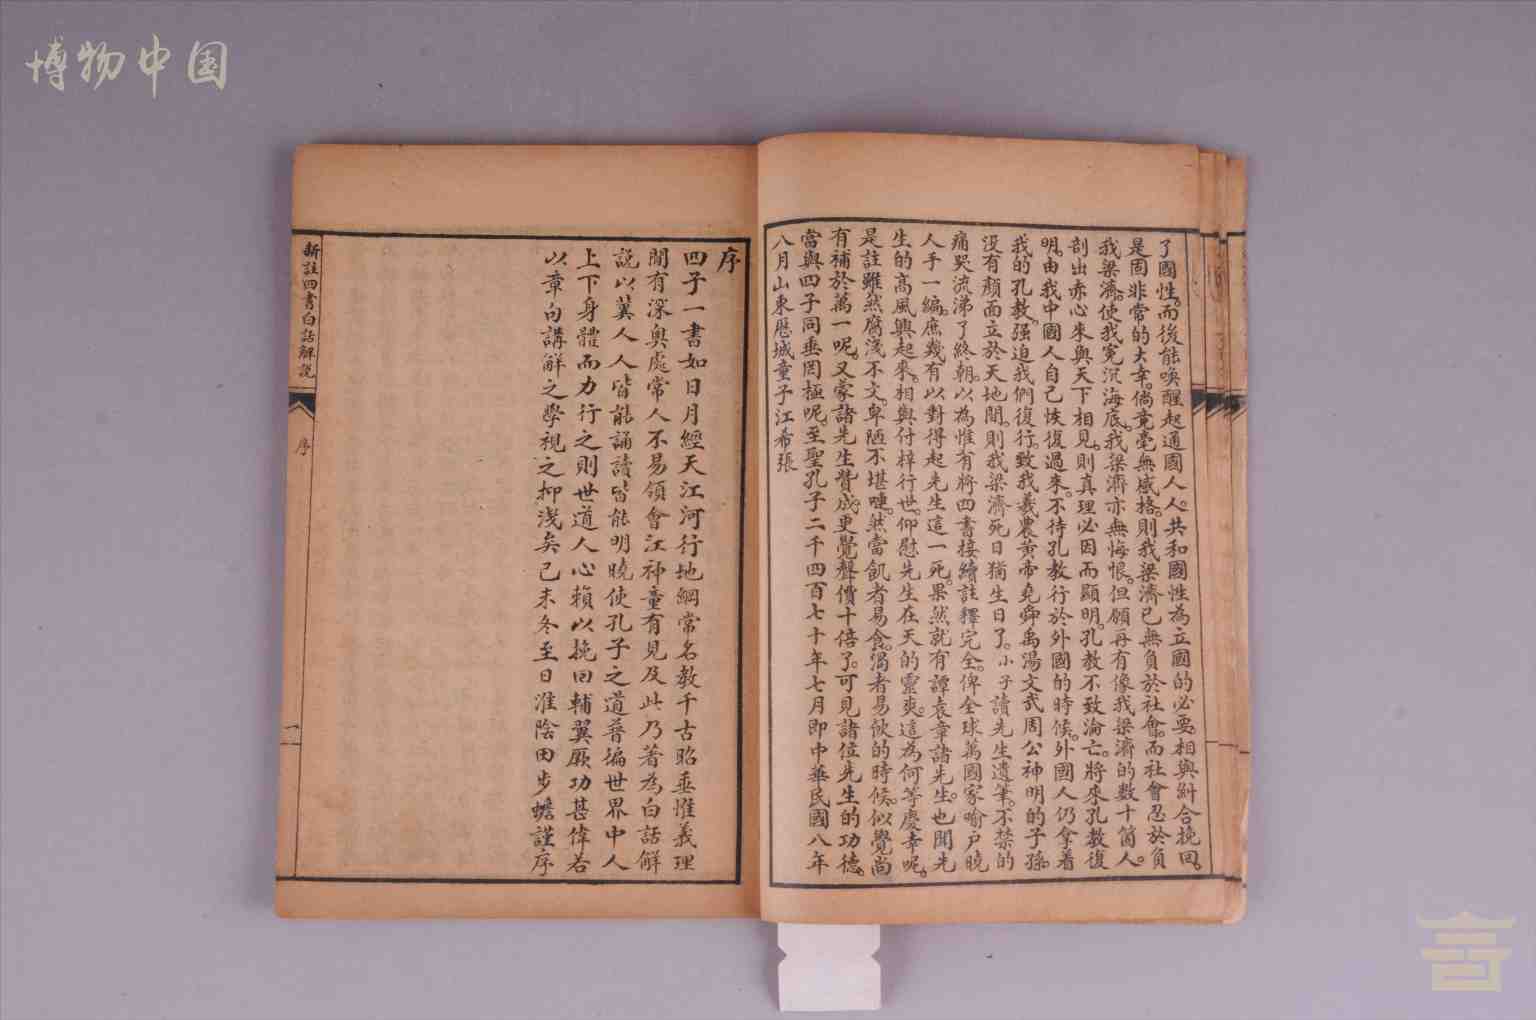 博物中国
了國性。而後能喚醒起通國人人。共和國性為立國的必要。相與糾合挽回。
是固非常的大幸。倘竟毫無感格。則我梁濟已無負於社會。而社會忍於負
我梁濟。使我冤沉海底。我梁濟亦無悔恨。但願再有像我梁濟的數十箇人。
剖出赤心來與天下相見。則真理必因而顯明。孔教不致淪亡。將來孔教復
明。由我中國人自己恢復過來。不待孔教行於外國的時候。外國人仍拿着
我的孔教。强迫我們復行。致我羲農黃帝堯舜禹湯文武周公神明的子孫。
沒有顏面立於天地間。則我梁濟死日猶生日了。小子讀先生遺筆。不禁的
痛哭流涕了終朝。以為惟有將四書接續註釋完全。俾全球萬國家喻戶曉
人手一編。庶幾有以對得起先生這一死。果然就有譚袁章諸先生。也聞先
生的高風興起來。相與付梓行世。仰慰先生在天的靈爽。這為何等慶幸呢。
是註雖然腐淺不文。卑陋不堪嗹。然當飢者易食。渴者易飲的時候。似覺尚
有補於萬一呢。又蒙諸先生贊成。更覺聲價十倍了。可見諸位先生的功德。
當與四子同垂罔極呢。至聖孔子二千四百七十年七月即中華民國八年
八月山東歷城童子江希張
序
四子一書如日月經天江河行地綱常名教千古昭垂惟義理
間有深奧處常人不易領會江神童有見及此乃著為白話解
說以冀人人皆能誦讀皆能明曉使孔子之道普徧世界中人
上下身體而力行之則世道人心賴以挽回輔翼厥功甚偉若
以章句講解之學視之抑淺矣己未冬至日淮陰田步蟾謹序
新註四書白話解說
序
一